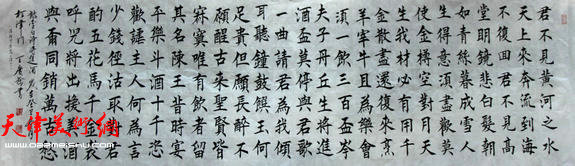 君不見黃河之水
天上來奔流到海
不復回君不見高
堂明鏡悲白髮朝
如青絲暮成雪人
生得意須盡歡莫
使金樽空對月天
生我材必有用千
金散盡還復來烹
羊宰牛且為樂會
須一飲三百盃岑
夫子丹丘生將進
酒君莫停與君歌
一曲請君為我傾
耳聽鐘鼓饌玉何
足貴但願長醉不
願醒古來聖賢皆
寂寞唯有飲者留
其名陳王昔時宴
平樂斗酒十千恣
歡謔主人何為言
少錢徑沽取對君
酌五花馬千金裘
呼兒將出換美酒
與爾同銷萬古愁
天津美術網